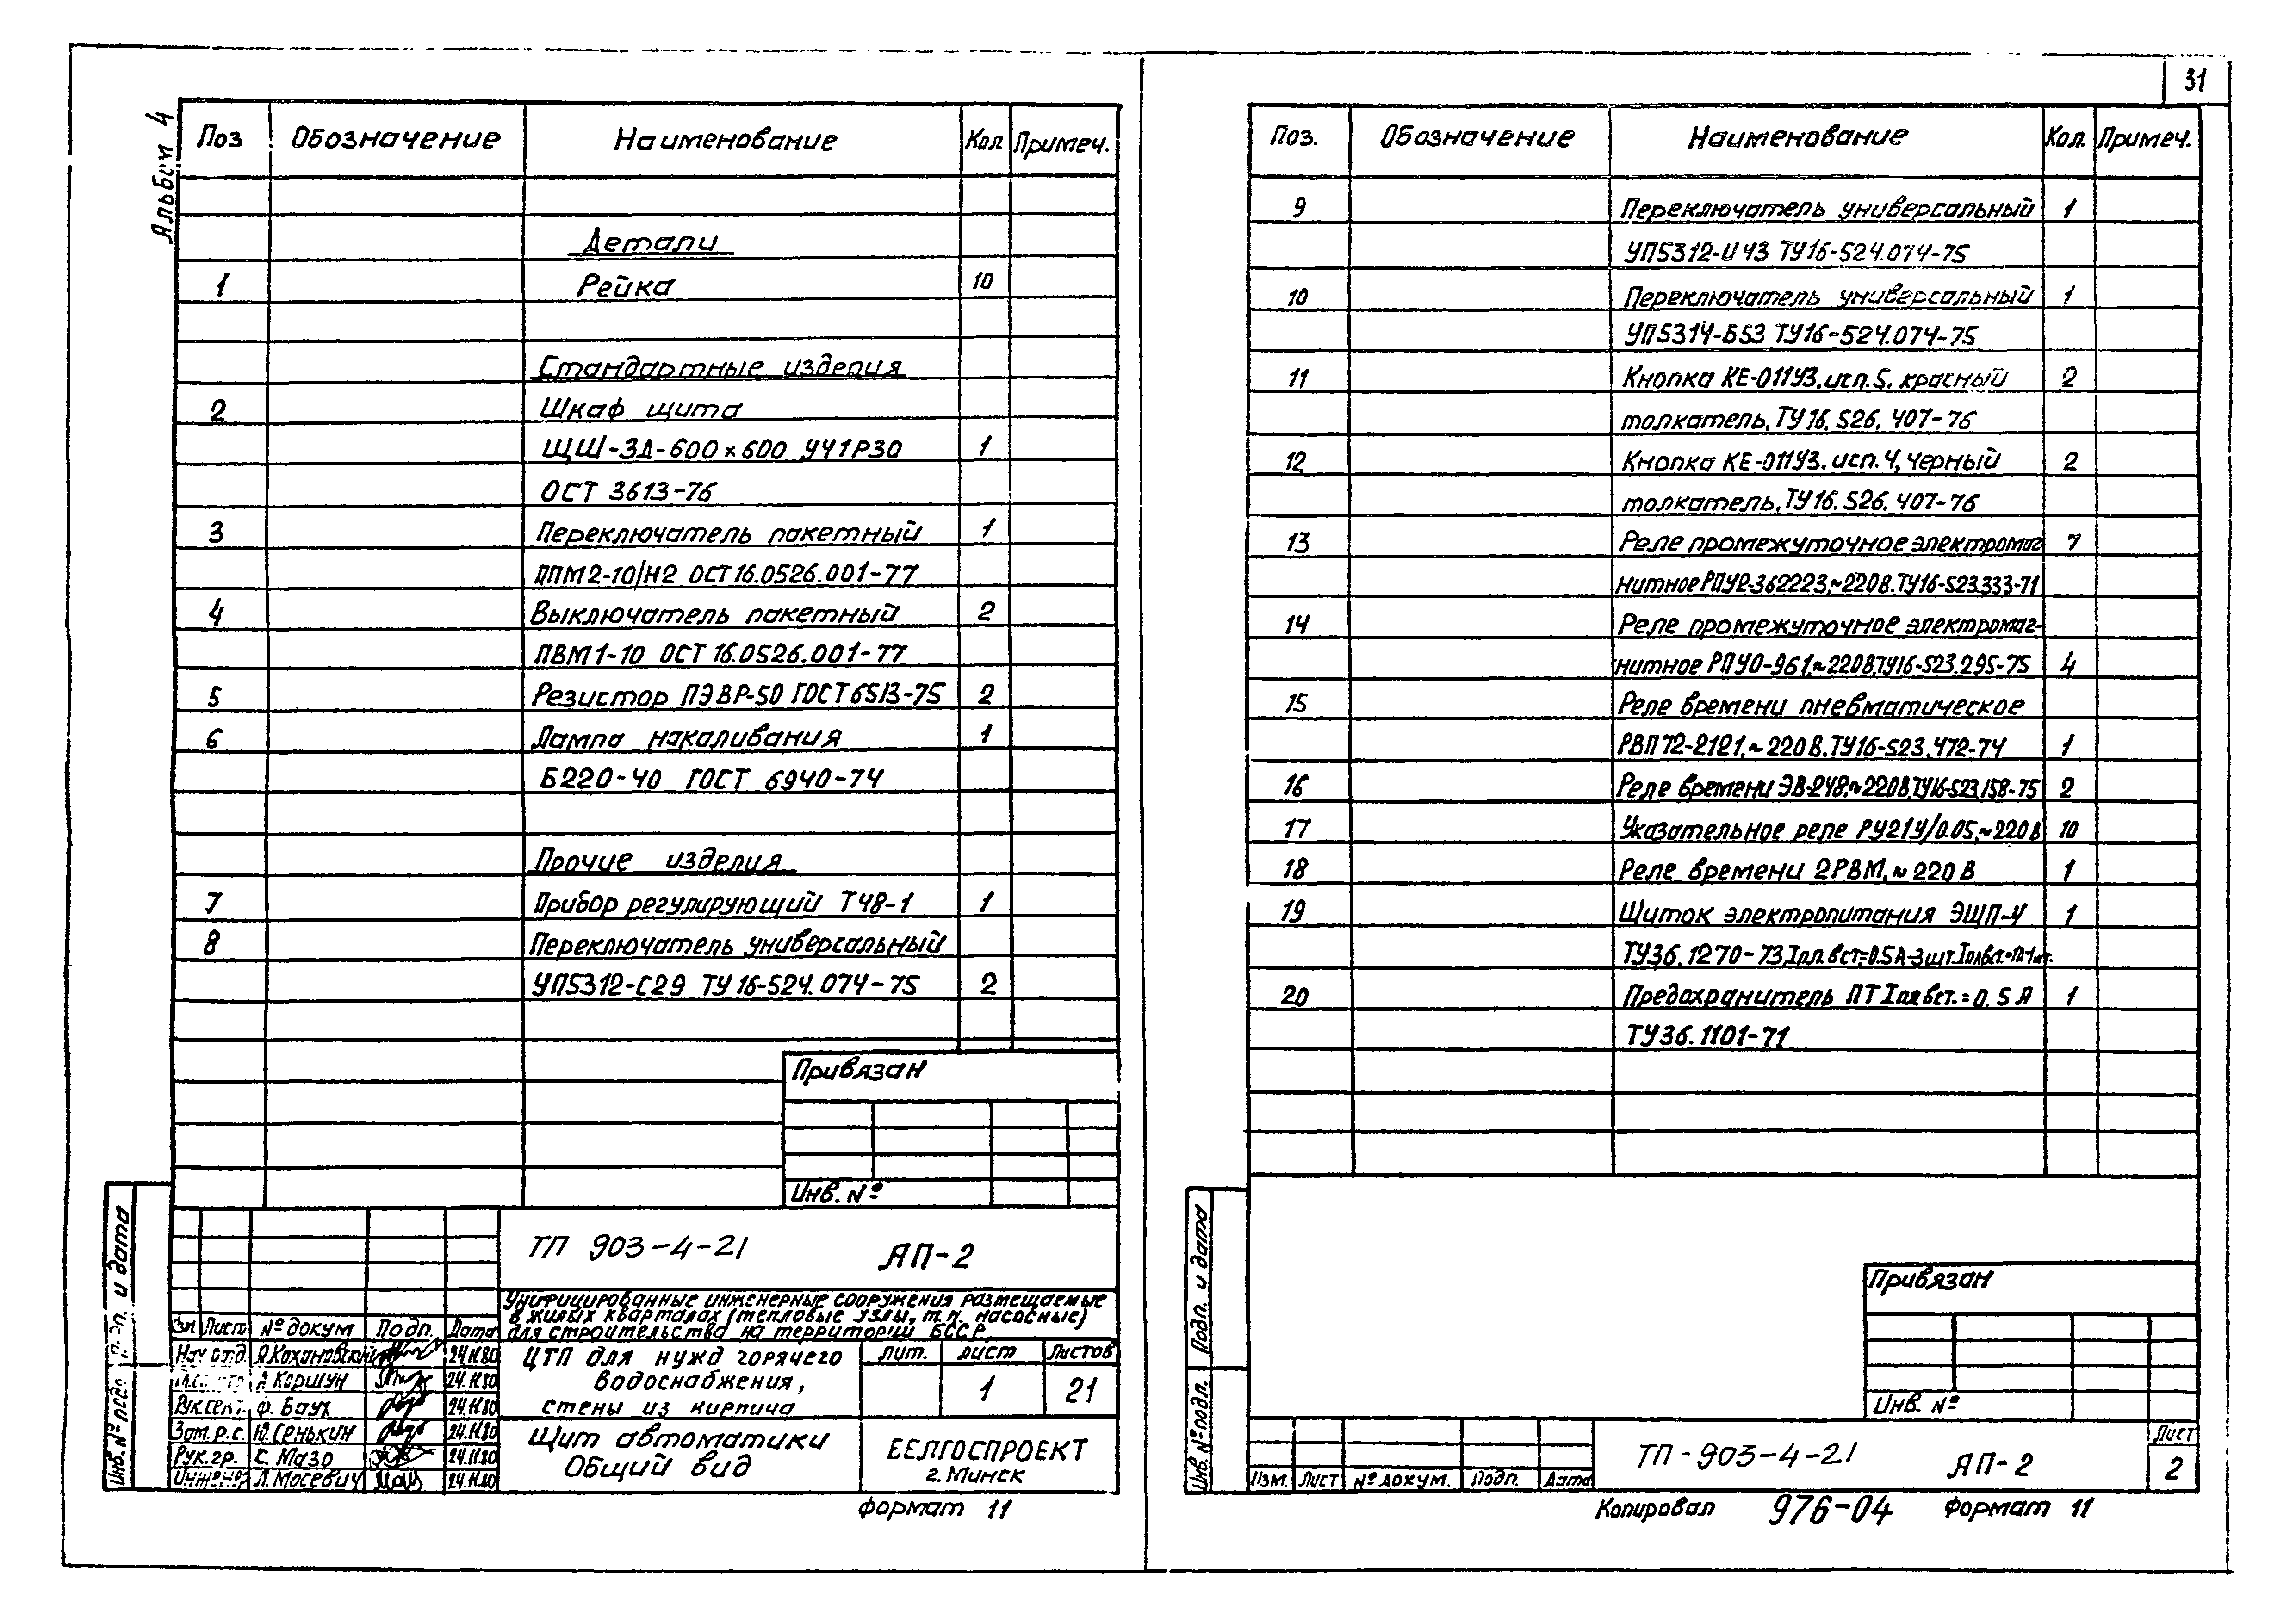 31
Альбом 4
Поз Обозначение Наименование Кол Примеч.
Детали
1 Рейка 10
Стандартные изделия
2 Шкаф щита
ЩШ-ЗД-600×600 УЧ1Р30 1
ОСТ 3613-76
3 Переключатель пакетный 1
ППМ2-10/Н2 ОСТ 16.0526.001-77
4 Выключатель пакетный 2
ПВМ1-10 ОСТ 16.0526.001-77
5 Резистор ПЭВР-50 ГОСТ 6513-75 2
6 Лампа накаливания 1
Б220-40 ГОСТ 6940-74
Прочие изделия
7 Прибор регулирующий Т48-1 1
8 Переключатель универсальный
УП5312-С29 ТУ 16-524.074-75 2
Привязан
Инв. №
ТП 903-4-21 АП-2
Унифицированные инженерные сооружения размещаемые
в жилых кварталах (тепловые узлы, т.п. насосные)
для строительства на территории БССР
Изм Лист № докум Подп. Дата
Нач отд. А Кохановский 24.11.80
А Коршун 24.11.80
Рук.сект. Ф. Баух 24.11.80
Зам. р.с. Ю. Сенькин 24.11.80
Рук. гр. С. Мазо 24.11.80
Инженер Л. Мосевич 24.11.80
ЦТП для нужд горячего
водоснабжения,
стены из кирпича
Лит. Лист Листов
1 21
Щит автоматики
Общий вид
БЕЛГОСПРОЕКТ
г. Минск
Формат 11
Подп. и дата
Инв. № подл
Поз. Обозначение Наименование Кол. Примеч.
9 Переключатель универсальный 1
УП5312-И43 ТУ16-524.074-75
10 Переключатель универсальный 1
УП5314-Б53 ТУ16-524.074-75
11 Кнопка КЕ-011У3. исп. 5. красный 2
толкатель. ТУ 16. 526. 407-76
12 Кнопка КЕ-011У3. исп. 4, черный 2
толкатель. ТУ 16. 526. 407-76
13 Реле промежуточное электромаг 7
нитное РПУ2-362223,~220В. ТУ16-523.333-71
14 Реле промежуточное электромаг-
нитное РПУ0-961,~220В,ТУ16-523.295-75 4
15 Реле времени пневматическое
РВП72-2121,~220В. ТУ16-523. 472-74 1
16 Реле времени ЭВ-248,~220В,ТУ16-523.158-75 2
17 Указательное реле РУ21У/0.05,~220В 10
18 Реле времени 2РВМ,~220 В 1
19 Щиток электропитания ЭЩП-4 1
ТУ36. 1270-73 Iпл.вст=0.5А-3шт.
20 Предохранитель ПТ Iпл вст.=0.5 А 1
ТУ36. 1101-71
Привязан
Инв. №
Изм. Лист № докум. Подп. Дата
ТП-903-4-21 АП-2
Лист
2
Копировал 976-04 Формат 11
Подп. и дата
Инв. № подл.